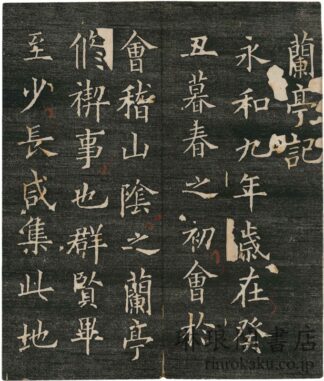 蘭亭記
永和九年歳在癸
丑暮春之初會於
會稽山陰之蘭亭
脩禊事也群賢畢
至少長咸集此地
琳琅閣書店
rinrokaku.co.jp